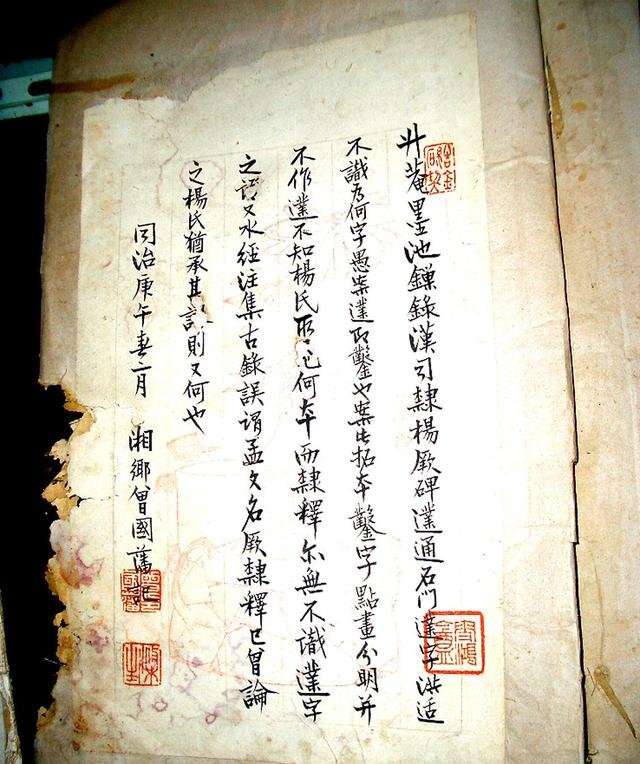 升菴墨池鏁錄漢司隸楊厥碑通石門字洪适
不識為何字愚案即鑿也案此拓本鑿字點畫分明并
不作不知楊氏所何夲而隸釋尔無不識字
之語又水經注集古錄誤謂孟文名厥隸釋已曾論
之楊氏猶承其誤則又何也
同治庚午春二月 湘鄉曾國藩記